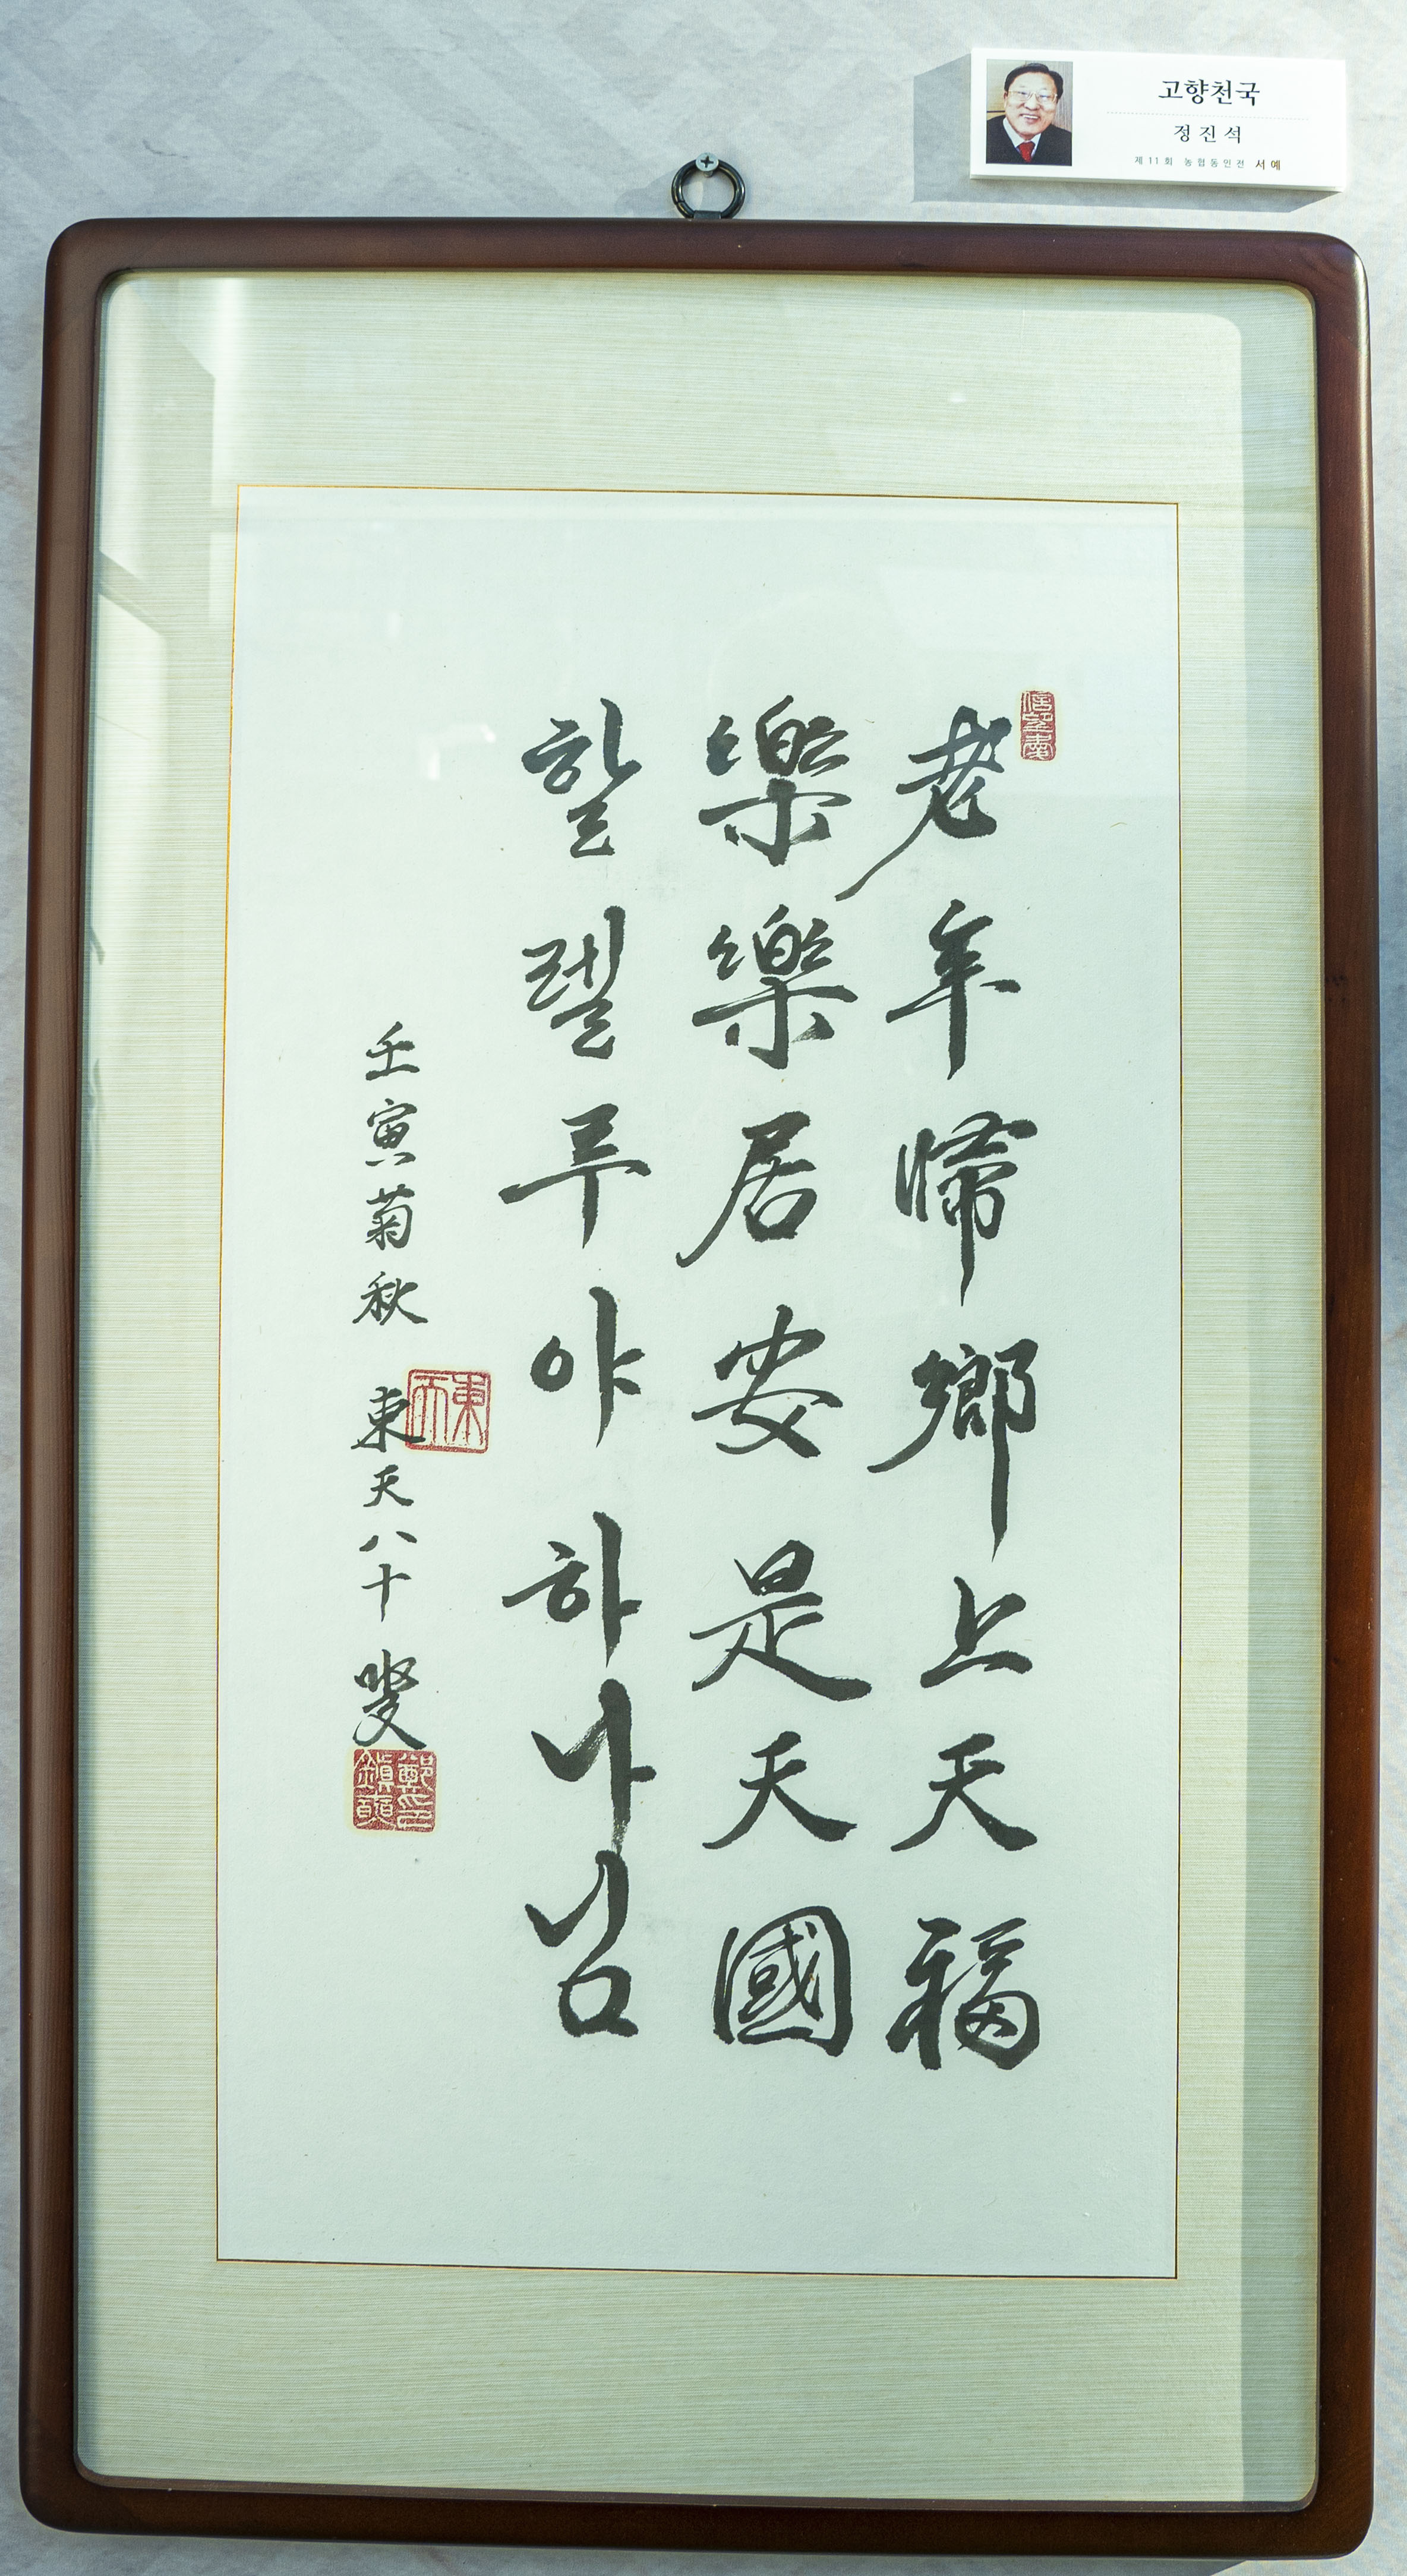 고향천국
정진석
제11회 농협동인전 서예
老年歸鄕上天福
樂樂居安是天國
할렐루야하나님
壬寅菊秋 東天八十叟
信望愛
東天